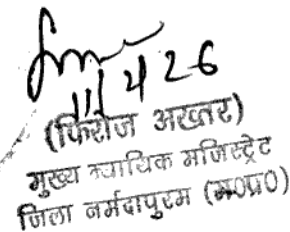 11/4 26
(फिरोज अख्तर)
मुख्य न्यायिक मजिस्ट्रेट
जिला नर्मदापुरम (म0प्र0)